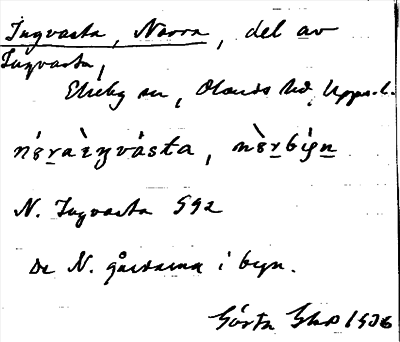 Ingvasta, Norra, del av
Ingvasta,
Ekeby sn, Olands hd, Upps. l.
nǿraìŋvásta, nǿrbíyn
N. Ingvasta 592
De N. gårdarna i byn.
Gösta 1936